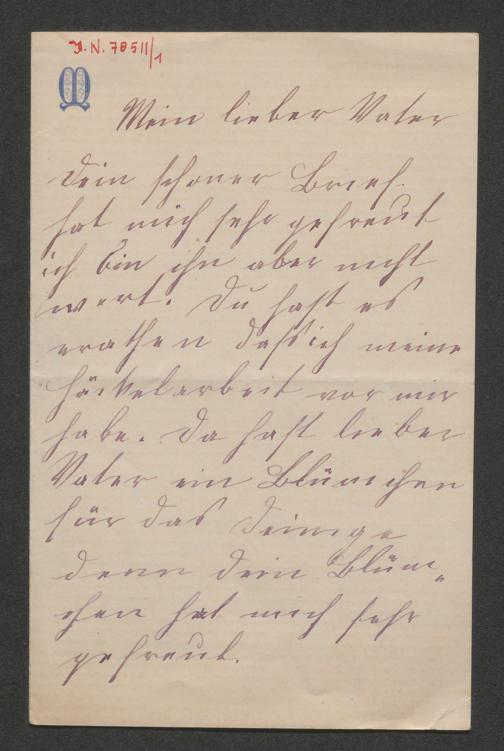 I. N. 78511/1
M
Mein lieber Vater
dein schoner Brief
hat mich sehr gefreut
ich bin ihn aber nicht
wert. Du hast es
erathen dass ich meine
Häckelarbeit vor mir
habe. Da hast lieber
Vater ein Blümchen
für das deinige
denn dein Blüm„
chen hat mich sehr
gefreut.